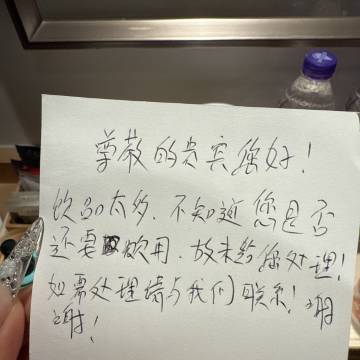 尊敬的贵宾您好！
饮品太多，不知道您是否
还要饮用，故未给您处理！
如需处理请与我们联系！谢
谢！